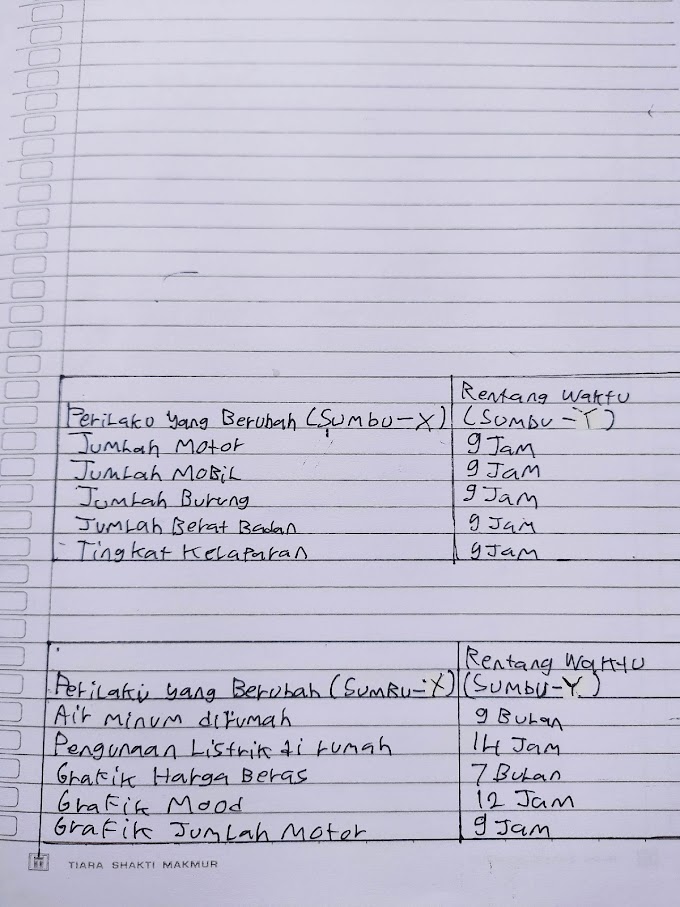 Rentang Waktu
Perilako yang Berubah (Sumbu-X) (Sumbu-Y)
Jumlah Motor 9 Jam
Jumlah Mobil 9 Jam
Jumlah Burung 9 Jam
Jumlah Berat Badan 9 Jam
- Tingkat Kelaparan 9 Jam
Rentang Waktu
Perilaku yang Berubah (Sumbu-X) (Sumbu-Y)
Air minum dirumah 9 Bulan
Pengunaan Listrik di rumah 14 Jam
Grafik Harga Beras 7 Bulan
Grafik Mood 12 Jam
Grafik Jumlah Motor 9 Jam
TIARA SHAKTI MAKMUR